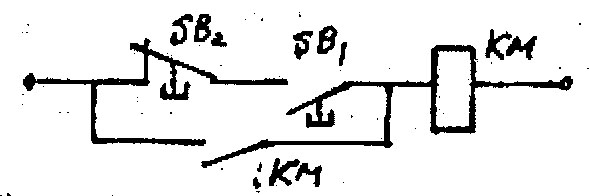 SB2
SB1
KM
KM